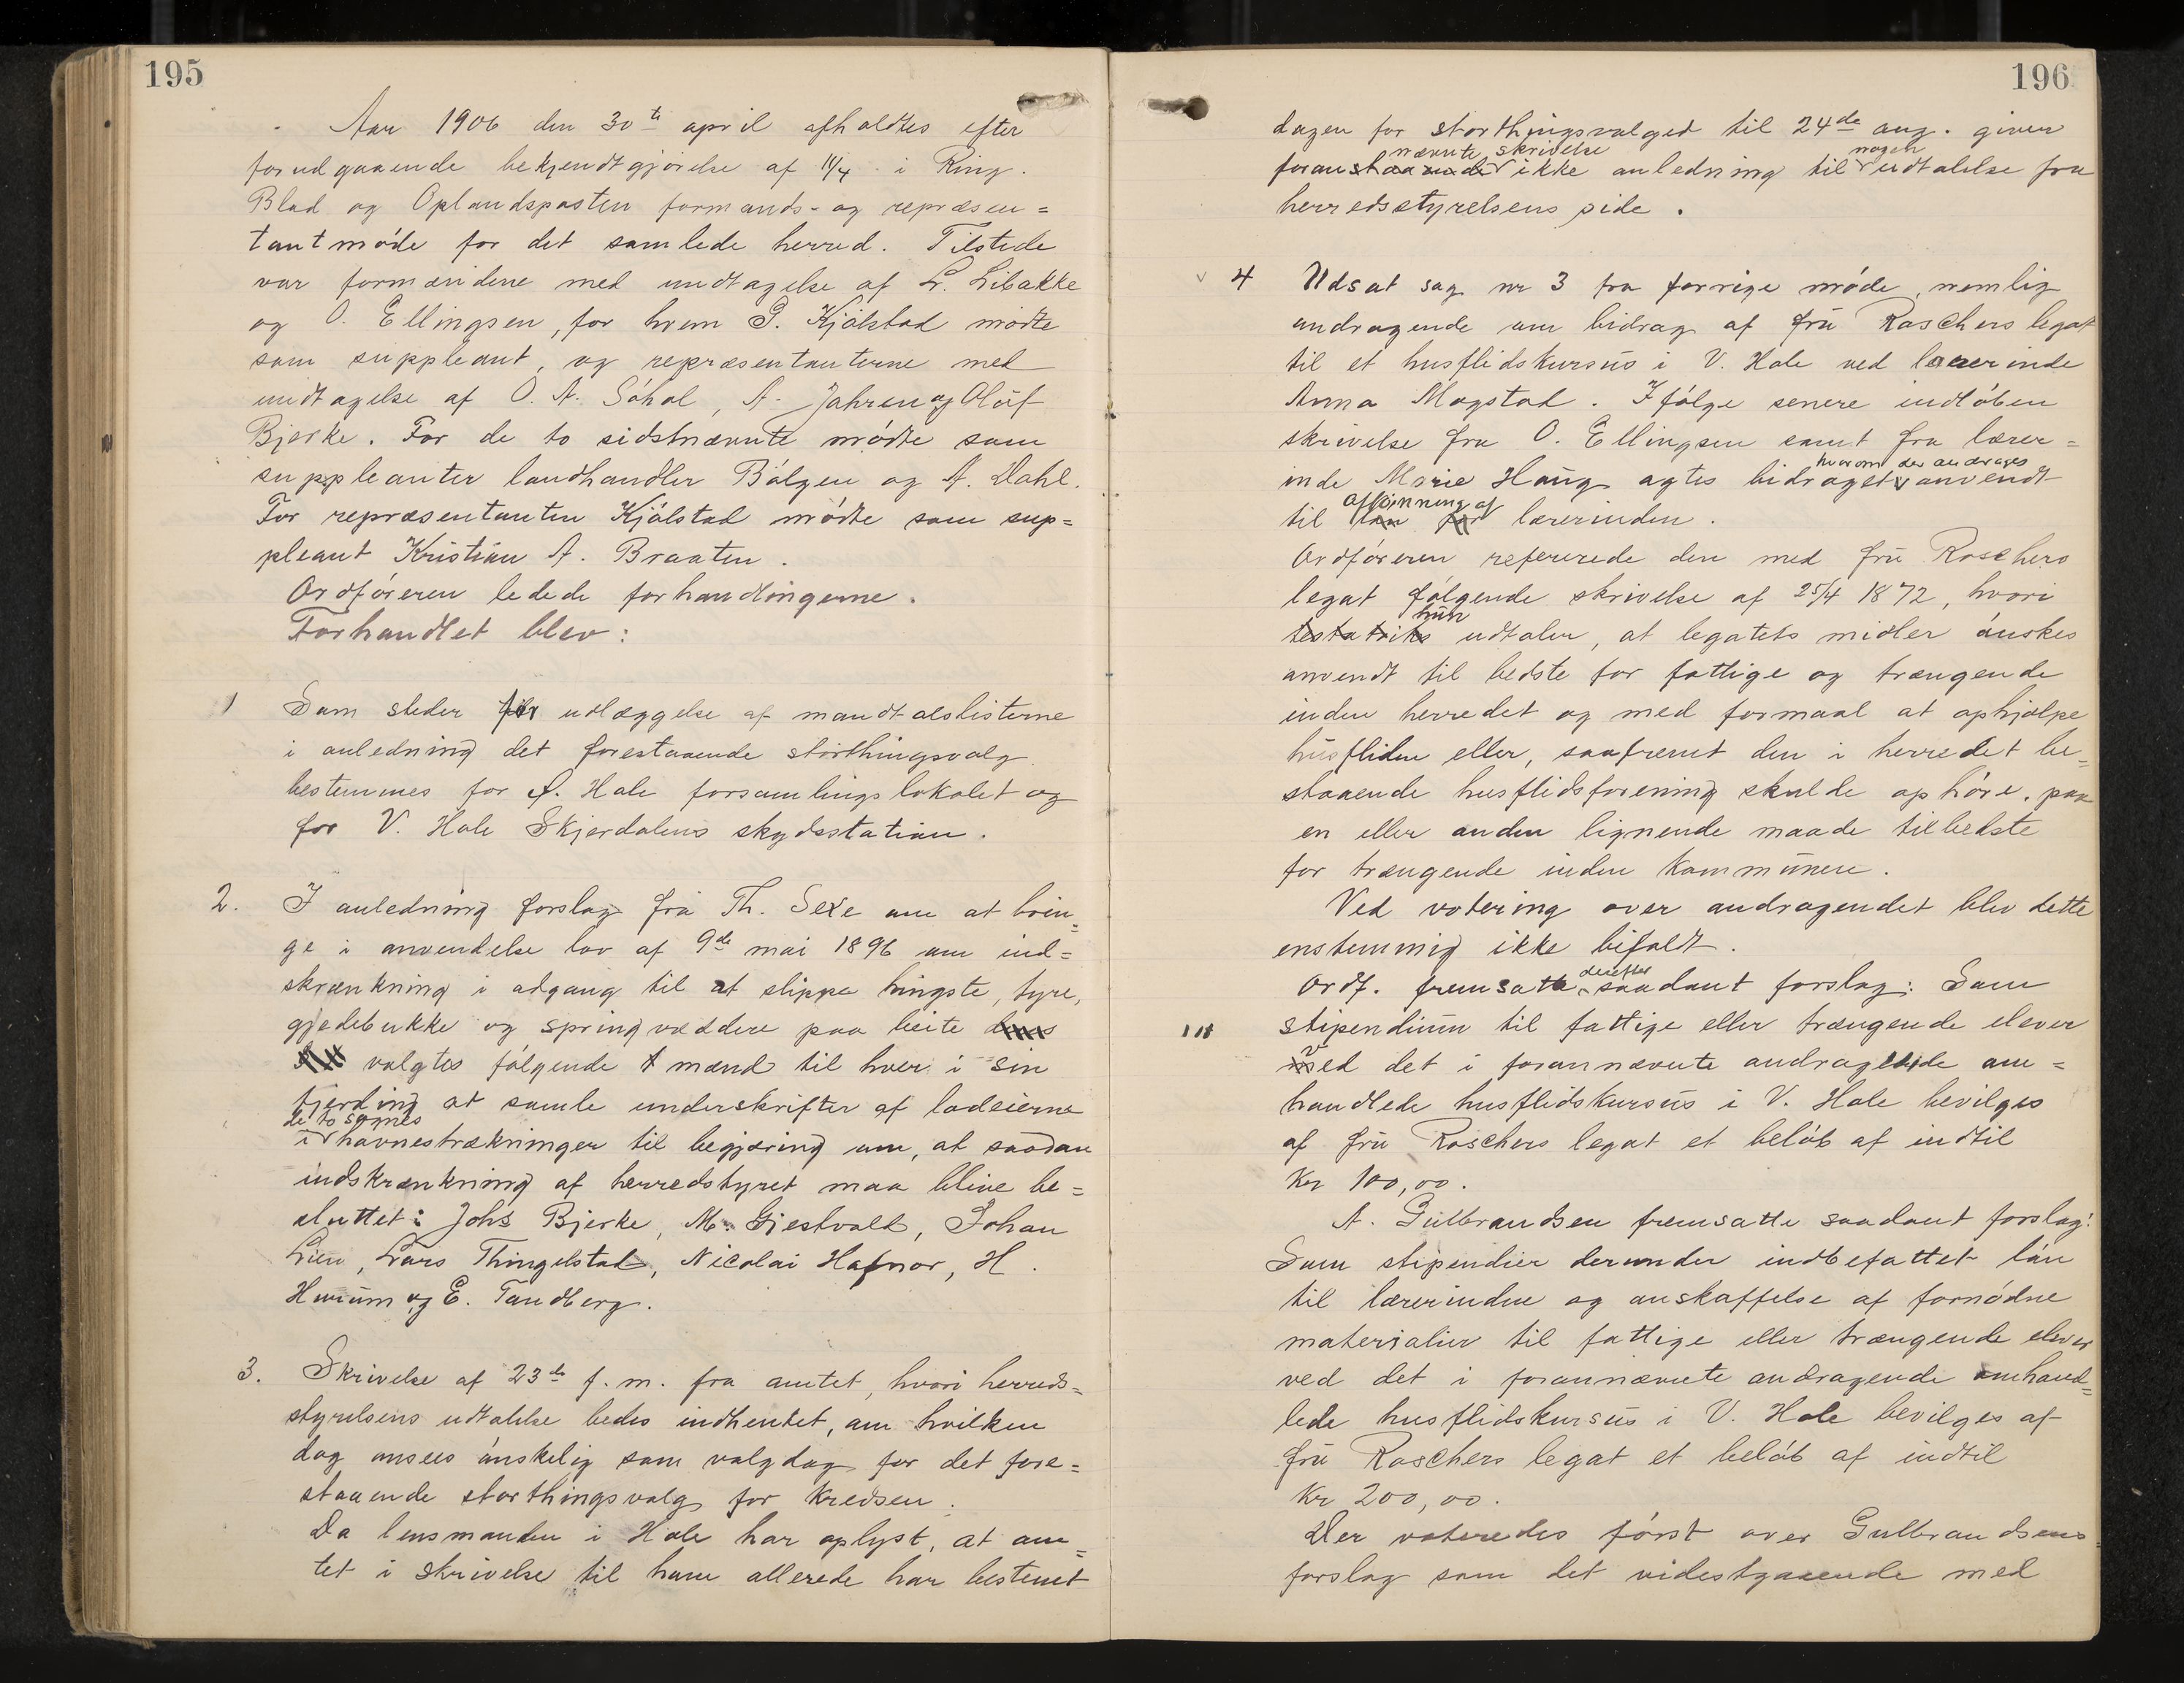 195
Aar 1906 den 30te april afholdtes efter
forudgaaende bekjendtgjörelse af 11/4 i Ring.
Blad og Oplandsposten formands- og repræsen=
tantmöde for det samlede herred. Tilstede
var formændene med undtagelse af L. Libakke
og O. Ellingsen, for hvem G. Kjölstad mödte
som suppleant, og repræsentanterne med
undtagelse af O. A. Söhol, A. Jahren og Oluf
Bjerke. For de to sidstnævnte mödte som
suppleanter landhandler Bölgen og A. Dahl.
For repræsentanten Kjölstad mödte som sup=
pleant Kristian A. Braaten.
Ordföreren ledede forhandlingerne.
Forhandlet blev:
1 Som steder for udlæggelse af mandtalslisterne
i anledning det forestaaende storthingsvalg
bestemmes for Hole forsamlingslokalet og
for V. Hole Skjerdalens skydsstation.
2. I anledning forslag fra Th. Sexe om at brin=
ge i anvendelse lov af 9de mai 1896 om ind=
skrænkning i adgang til at slippe hingste, tyre,
gjedebukke og springvæddere paa beite
valgtes fölgende mænd til hver i sin
fjerding at samle underskrifter af lodseierne
de to sognes
i havnestrækninger til begjæring om, at saadan
indskrænkning af herredstyret maa blive be=
sluttet: Johs Bjerke, M. Gjestvold, Johan
Lien, Lars Thingelstad, Nicolai Hafnor, H.
Hurum og E. Tandberg.
3. Skrivelse af 23de f. m. fra amtet, hvori herreds=
styrelsens udtalelse bedes indhentet, om hvilken
dag ansees önskelig som valgdag for det fore=
staaende storthingsvalg for kredsen.
Da lensmanden i Hole har oplyst, at am=
tet i skrivelse til ham allerede har bestemt
196
dagen for storthingsvalget til 24de aug. giver
nævnte skrivelse nogen
foranstaaende ikke anledning til udtalelse fra
herredsstyrelsens side.
4 Udsat sag nr 3 fra forrige möde, nemlig
andragende om bidrag af fru Roschers legat
til et husflidskursus i V. Hole ved lærerinde
Anna Mogstad. Ifölge senere indlöben
skrivelse fra O. Ellingsen samt fra lærer=
hvorom der andrages
inde Marie Haug agtes bidraget anvendt
Aflönning af
til lön for lærerinden.
Ordföreren refererede den med fru Roschers
legat fölgende skrivelse af 25/4 1872, hvori
hun
testatriks udtaler, at legatets midler önskes
anvendt til bedste for fattige og trængende
inden herredet og med formaal at ophjælpe
husfliden eller, saafremt den i herredet be=
staaende husflidsforening skulde ophöre, paa
en eller anden lignende maade til bedste
for trængende inden kommunen.
Ved votering over andragendet blev dette
enstemmig ikke bifaldt.
derefter
Ordf. fremsatte saadant forslag: Som
stipendium til fattige eller trængende elever
ved det i forannævnte andragende om=
handlede husflidskursus i V. Hole bevilges
af fru Roschers legat et belöb af indtil
Kr 100,00.
A. Gulbrandsen fremsatte saadant forslag:
Som stipendier derunder indbefattet lön
til lærerinden og anskaffelse af fornödne
materialier til fattige eller trængende elever
ved det i forannævnte andragende omhand=
lede husflidskursus i V. Hole bevilges af
fru Roschers legat et belöb af indtil
Kr 200,00.
Der voteredes först over Gulbrandsens
forslag som det videstgaaende med